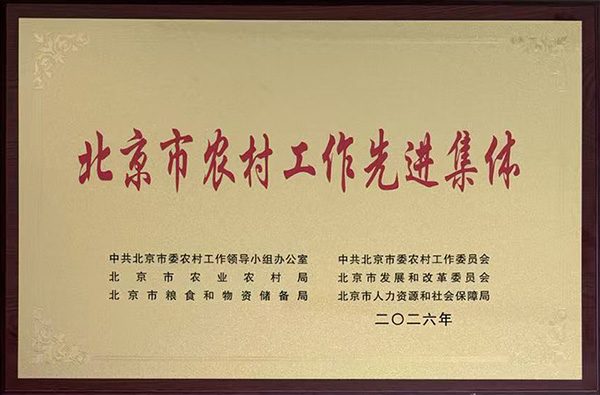 北京市农村工作先进集体
中共北京市委农村工作领导小组办公室 中共北京市委农村工作委员会
北京市农业农村局 北京市发展和改革委员会
北京市粮食和物资储备局 北京市人力资源和社会保障局
二〇二六年